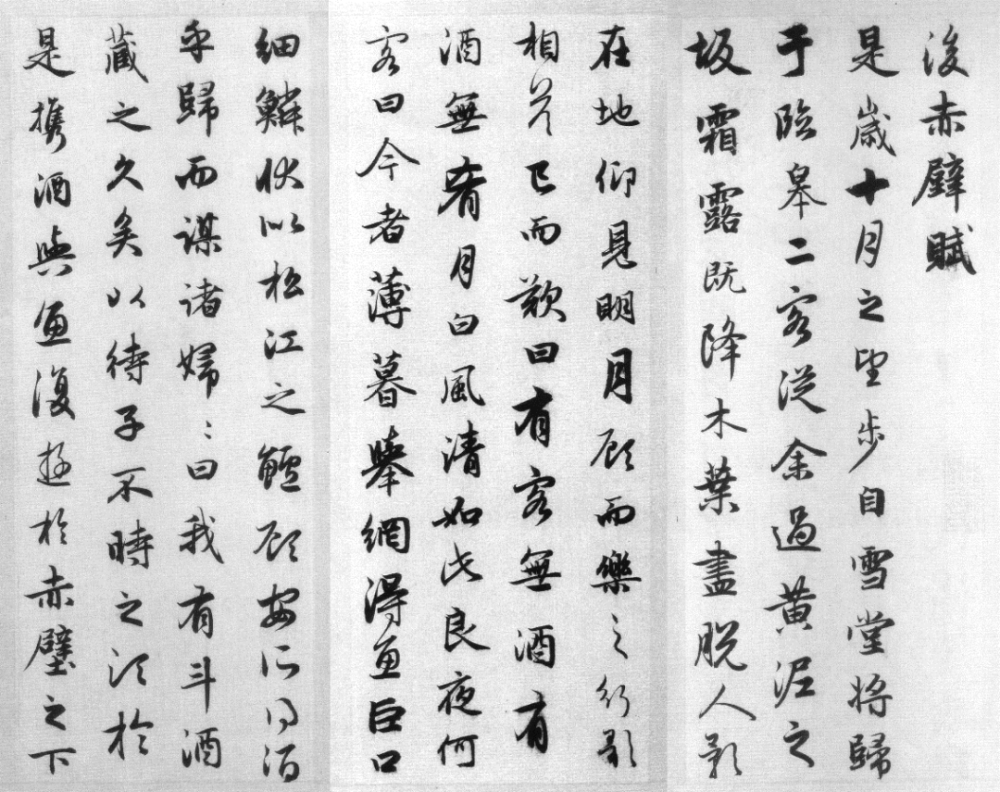 後赤壁賦
是歲十月之望步自雪堂將歸
于臨皋二客從余過黃泥之
坂霜露既降木葉盡脫人影
在地仰見明月顧而樂之行歌
相答已而歎曰有客無酒有
酒無肴月白風清如此良夜何
客曰今者薄暮舉網得魚巨口
細鱗狀似松江之鱸顧安所得酒
乎歸而謀諸婦：曰我有斗酒
藏之久矣以待子不時之須於
是攜酒與魚復遊於赤壁之下